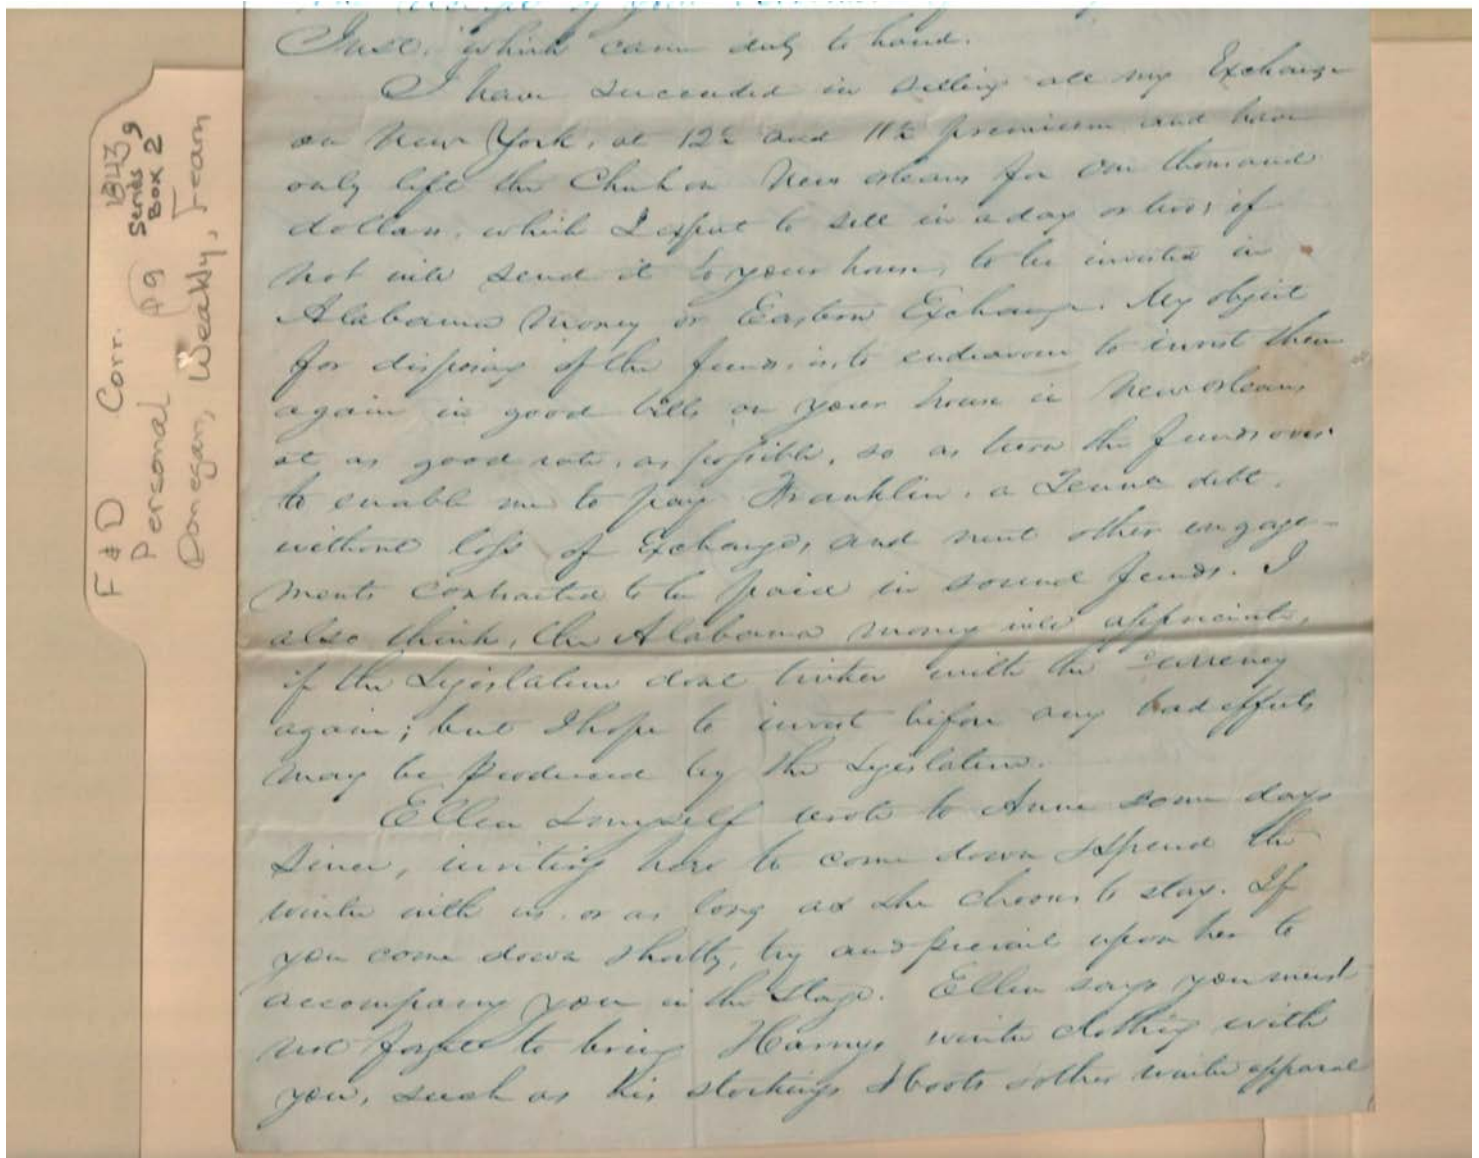 Inst. which came duly to hand.
I have succeeded in selling all my Exchange
on New York, at 12½ and 11½ premium and have
only left the Check on New Orleans for one thousand
dollars, which I expect to sell in a day or two; if
not will send it to your house, to be invested in
Alabama Money or Eastern Exchange. My object
for disposing of the funds, is to endeavour to invest them
again in good bills on your house in New Orleans
at as good rate, as possible, so as turn the funds over
to enable me to pay Franklin, a Tenne debt,
without loss of Exchange, and meet other engage-
ments contracted to be paid in sound funds. I
also think, the Alabama money will appreciate,
if the Legislature dont tinker with the currency
again; but I hope to invest before any bad effects
may be produced by the Legislature.
Ellen & myself wrote to Anne some days
since, inviting here to come down & spend the
winter with us or as long as she chooses to stay. If
you come down shortly, try and prevail upon her to
accompany you in the Stage. Ellen says you must
not forget to bring Harrys winter clothing with
you, such as his stockings & boots & other winter apparel
F & D Corr. 1843
Personal 99 Series 9
Box 2
Donegan, Weakly, Fearn